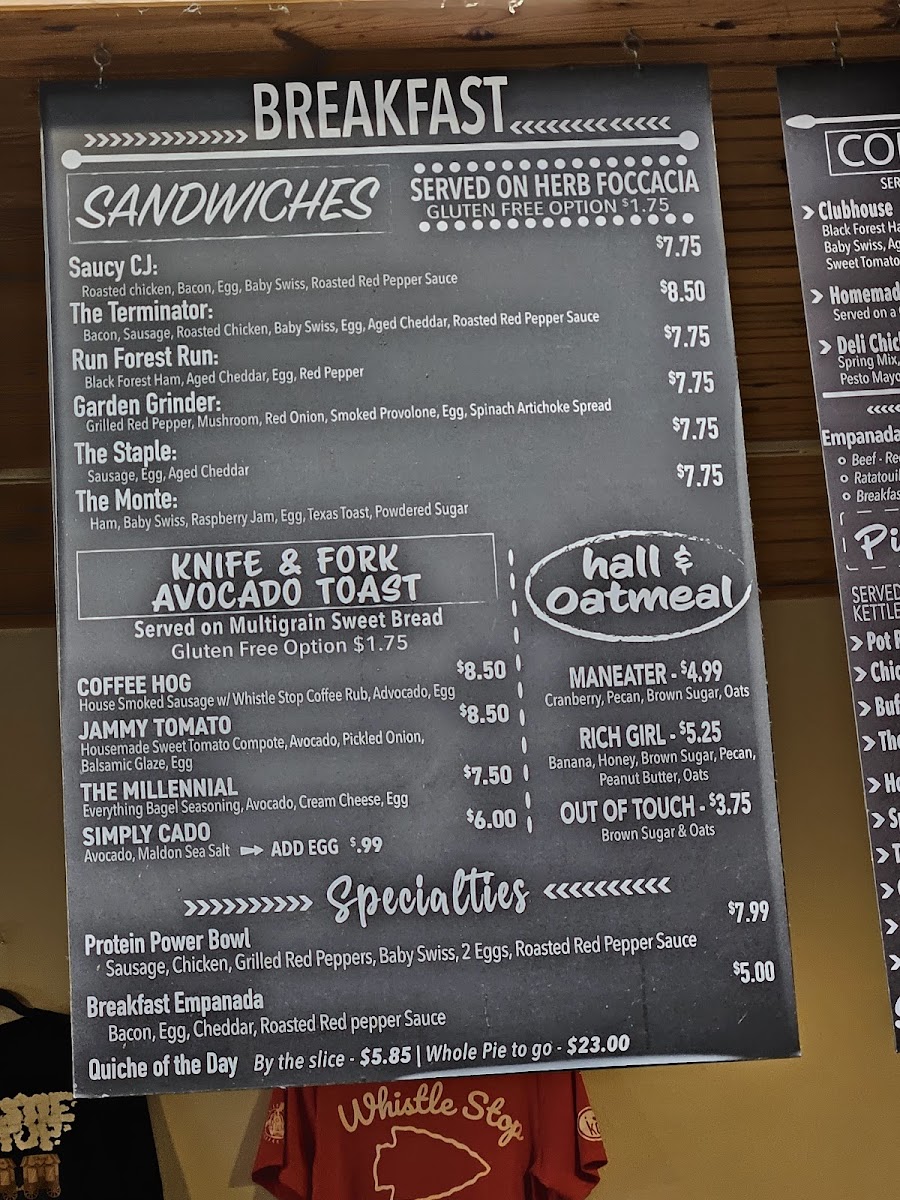 BREAKFAST
SANDWICHES
SERVED ON HERB FOCCACIA
GLUTEN FREE OPTION $1.75
Saucy CJ: $7.75
Roasted chicken, Bacon, Egg, Baby Swiss, Roasted Red Pepper Sauce
The Terminator: $8.50
Bacon, Sausage, Roasted Chicken, Baby Swiss, Egg, Aged Cheddar, Roasted Red Pepper Sauce
Run Forest Run: $7.75
Black Forest Ham, Aged Cheddar, Egg, Red Pepper
Garden Grinder: $7.75
Grilled Red Pepper, Mushroom, Red Onion, Smoked Provolone, Egg, Spinach Artichoke Spread
The Staple: $7.75
Sausage, Egg, Aged Cheddar
The Monte: $7.75
Ham, Baby Swiss, Raspberry Jam, Egg, Texas Toast, Powdered Sugar
KNIFE & FORK
AVOCADO TOAST
Served on Multigrain Sweet Bread
Gluten Free Option $1.75
COFFEE HOG $8.50
House Smoked Sausage w/ Whistle Stop Coffee Rub, Advocado, Egg
JAMMY TOMATO $8.50
Housemade Sweet Tomato Compote, Avocado, Pickled Onion,
Balsamic Glaze, Egg
THE MILLENNIAL $7.50
Everything Bagel Seasoning, Avocado, Cream Cheese, Egg
SIMPLY CADO $6.00
Avocado, Maldon Sea Salt ADD EGG $.99
hall &
oatmeal
MANEATER - $4.99
Cranberry, Pecan, Brown Sugar, Oats
RICH GIRL - $5.25
Banana, Honey, Brown Sugar, Pecan,
Peanut Butter, Oats
OUT OF TOUCH - $3.75
Brown Sugar & Oats
Specialties
Protein Power Bowl $7.99
Sausage, Chicken, Grilled Red Peppers, Baby Swiss, 2 Eggs, Roasted Red Pepper Sauce
Breakfast Empanada $5.00
Bacon, Egg, Cheddar, Roasted Red pepper Sauce
Quiche of the Day By the slice - $5.85 | Whole Pie to go - $23.00
Clubhouse
Black Forest
Baby Swiss,
Sweet Tomato
Served on a
Deli
Spring Mix,
Pesto
Beef -
SERVED
KETTLE
Pot
Whistle Stop